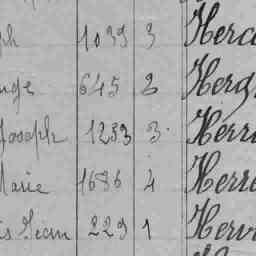 ph 1039 3 Herc
ange 645 2 Herg
Joseph 1233 3. Herr
Marie 1686 4 Herre
is Jean 229 1 Herv